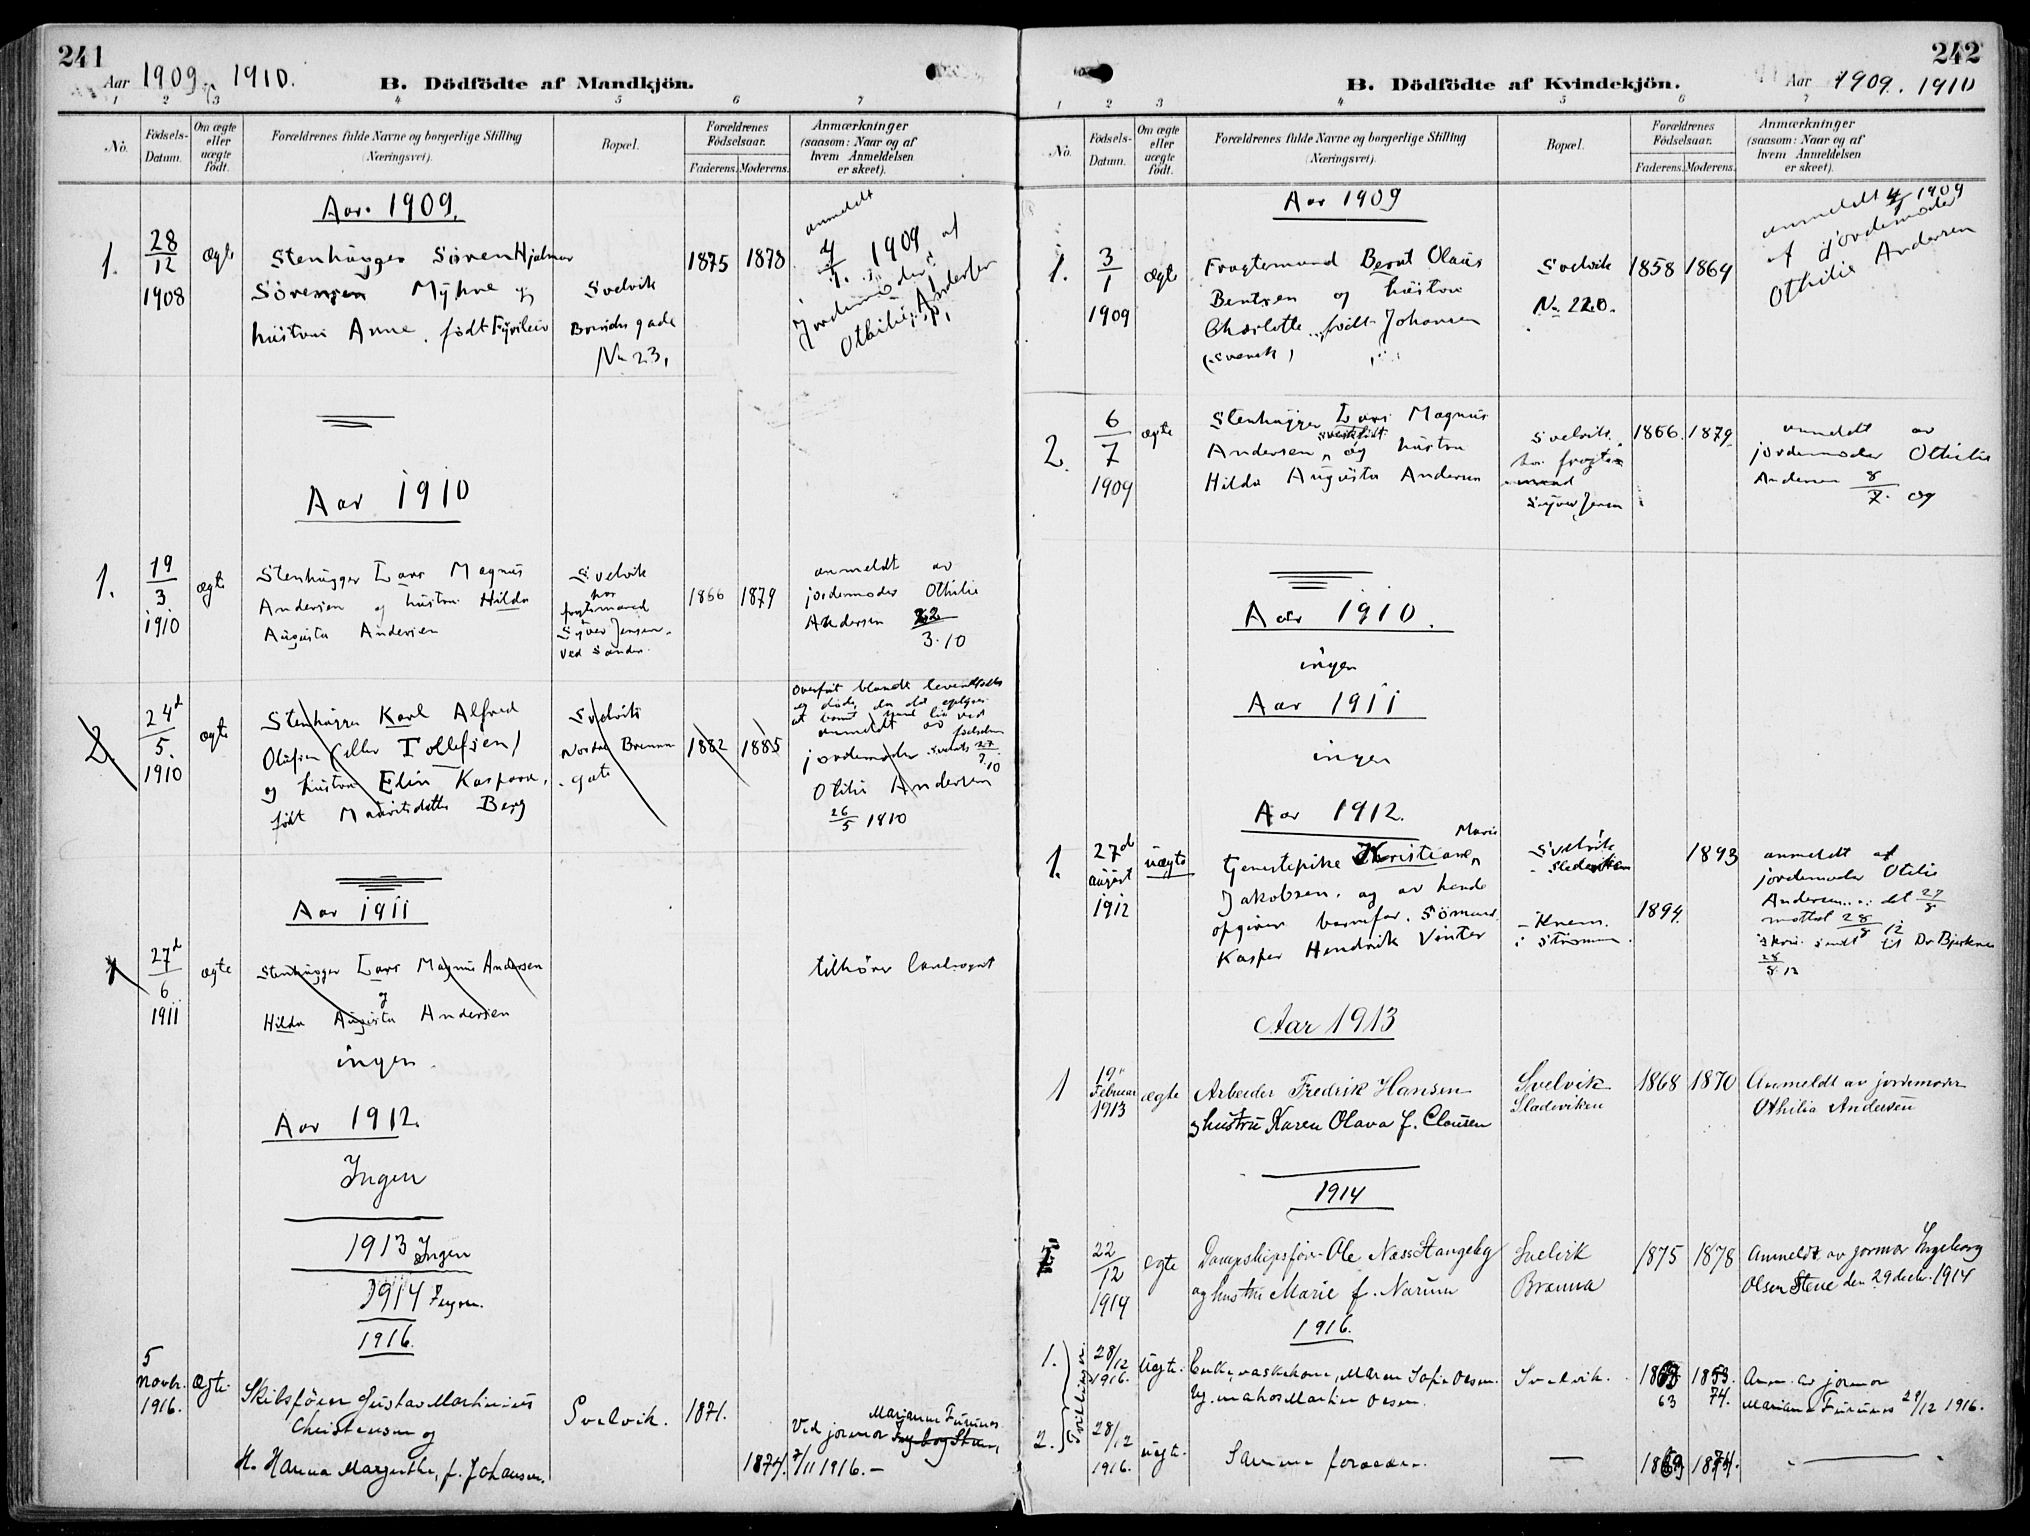 241
Aar 1909 og 1910.
B. Dödfödte af Mandkjön.
1 2 3 4 5 6 7
No. Födsels-Datum. Om ægte eller uægte födt. Forældrenes fulde Navne og borgerlige Stilling (Næringsvei). Bopæl. Forældrenes Födselsaar. Faderens. Moderens. Anmærkninger (saasom: Naar og af hvem Anmeldelsen er skeet).
Aar 1909.
1. 28/12 1908 ægte Stenhugger Sören Hjalmar 1875 1878 anmeldt
Sörensen Myhre og Svelvik 4/1. 1909 af
hustru Anne, født Brendsgade jordemoder
No 23. Othilie Andersen
Aar 1910
1. 19/3 1910 ægte Stenhugger Lars Magnus Svelvik 1866 1879 anmeldt av
Andersen og hustru Hilda hos fragtemand jordemoder Othilie
Augusta Andersen Syver Jensen Andersen 22/3.10
ved Sander.
2. 24d/5. 1910 ægte Stenhugger Karl Alfred Svelvik 1882 1885 Overført blandt levendefødte
og døde, da det oplyses
at barnet havde liv ved fødselen
Olufsen (eller Tollefsen) Nordre Brenna anmeldt av
og hustru Elin Kaspara, gate jordemoder
født Mauritsdatter Berg Otilie Andersen
26/5 1910
Aar 1911
1 27d/6 1911 ægte Stenhugger Lars Magnus Andersen tilhører Landsognet
og
Hilda Augusta Andersen
ingen.
Aar 1912.
Ingen
1913 Ingen
1914 Ingen.
1916.
5 novbr. 1916. Ægte. Skibsfører Gustav Martinius Svelvik. 1871. Marianne Furunes
Christensen og Ved jormor
H. Hanna Margrethe, f. Johansen. 1874. 7/11 1916. –
242
B. Dödfödte af Kvindekjön.
Aar 1909. 1910
1 2 3 4 5 6 7
No. Födsels-Datum. Om ægte eller uægte födt. Forældrenes fulde Navne og borgerlige Stilling (Næringsvei). Bopæl. Forældrenes Födselsaar. Faderens. Moderens. Anmærkninger (saasom: Naar og af hvem Anmeldelsen er skeet).
Aar 1909
1. 3/1 1909 ægte Fragtemand Bernt Olaus Svelvik 1858 1864 anmeldt 4/1 1909
Bentsen og hustru No 220. af jordemoder
Charlotte født Johansen Othilie Andersen
(svensk)
2. 6/7 1909 ægte Stenhugger Lars Magnus Svelvik. 1866. 1879. anmeldt av
Andersen, og hustru hos fragtemand jordemoder Othilie
Hilda Augusta Andersen Syver Jensen Andersen 8/7. 09
Aar 1910.
ingen
Aar 1911
ingen
Aar 1912.
1. 27d august 1912 uægte Tjenestepike Kristiane Marie Svelvik 1893 anmeldt af
Jakobsen, og av hende Sledeviken jordemoder Otilie
opgiven barnefar. Sömand 1894. Andersen det 27/8
Kasper Hendrik Vinter i Strømmen. mottat 28/8 12
skr. sendt til Dr Bjerknes
28/8 12
Aar 1913
1 19. Februar 1913 ægte Arbeider Fredrik Hansen Svelvik 1868 1870 Anmeldt av jordemoder
og hustru Karen Olava f. Clausen Sladeviken Othilia Andersen
1914
1 22/12 1914 Egte Dampskipsfører Ole Næss Stangeby Svelvik 1875 1878 Anmeldt av jormor Ingeborg
og hustru Marie f. Narum Brenna Olsen Stene den 29 decbr. 1914
1916.
Tvillinger.
1. 28/12 1916. Uegte. Enke, vaskekone, Maren Sofie Olsen. Svelvik. 63 74. Anm. av jormor
Ug. matros Martin Olsen. Marianne Furunes 29/12 1916.
2. 28/12 1916. uegte. Samme forældre. — 1863 1874. —